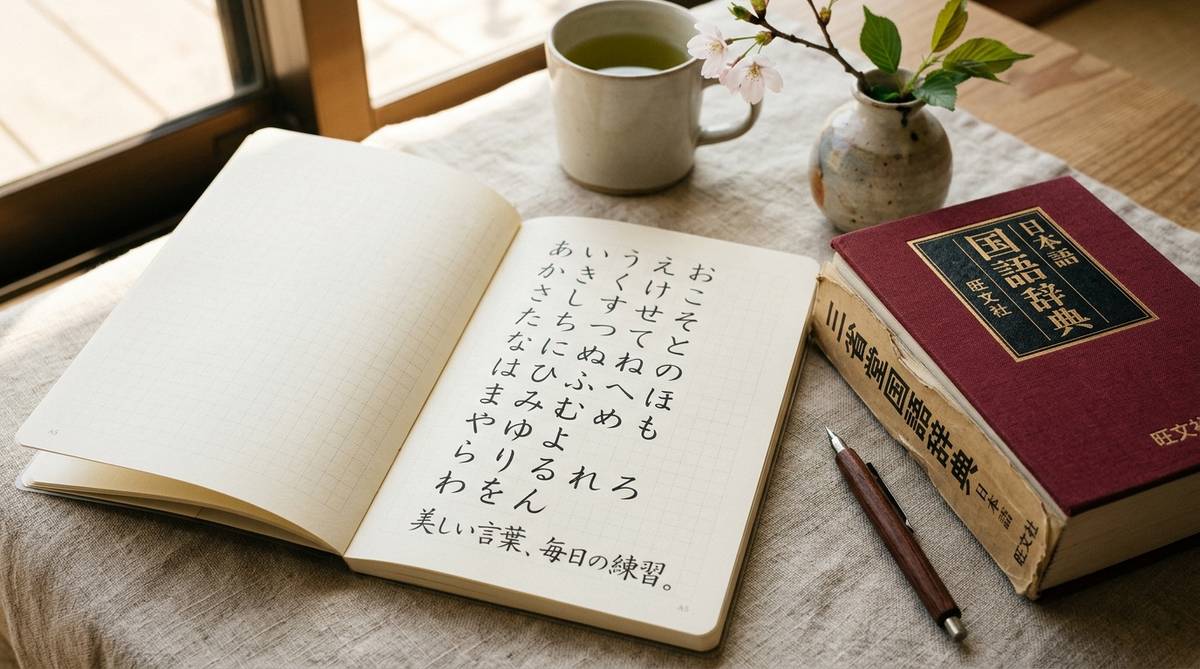 あ い う え お
か き く け こ
さ し す せ そ
た ち つ て と
な に ぬ ね の
は ひ ふ へ ほ
ま み む め も
や ゆ よ
ら り る れ ろ
わ を ん
美しい言葉、毎日の練習。
A5
A5
日本語
国語辞典
旺文社
旺文社
三省堂国語辞典 日本語 旺文社